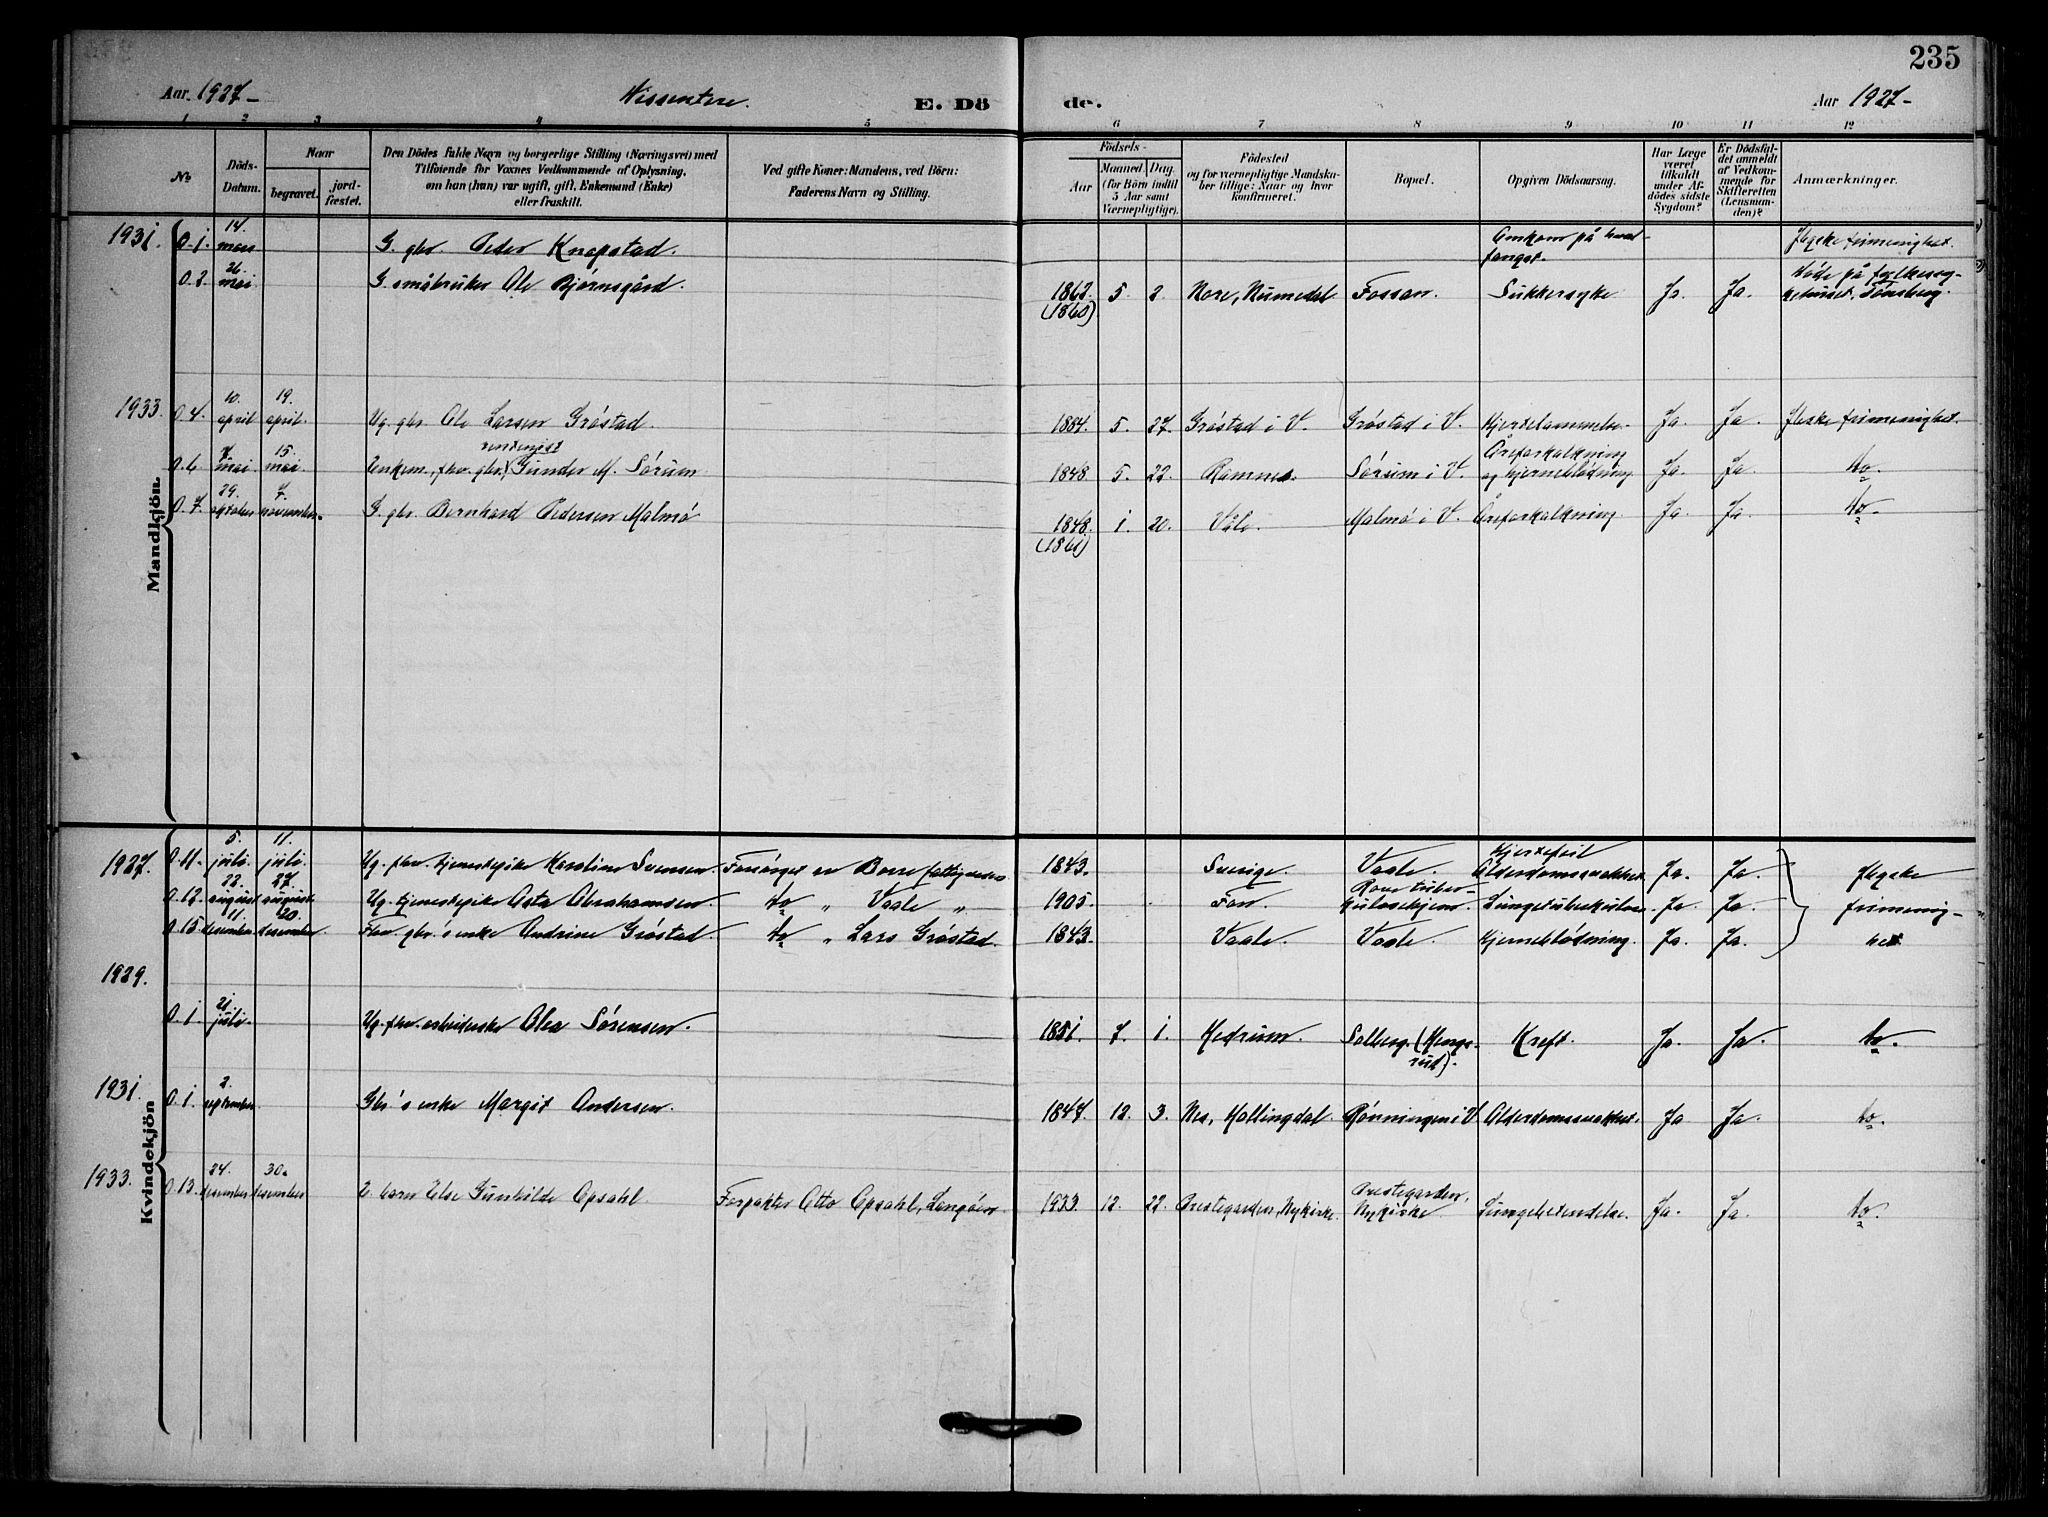 235
Aar 1927- Dissentere. E. Dö de. Aar 1927-
1 2 3 4 5 6 7 8 9 10 11 12
№
Döds-Datum.
Naar
begravet.
jord-fæstet.
Den Dödes fulde Navn og borgerlige Stilling (Næringsvei) med
Tilföiende for Voxnes Vedkommende af Oplysning,
om han (hun) var ugift, gift, Enkemand (Enke)
eller fraskilt.
Ved gifte Koner: Mandens, ved Börn:
Faderens Navn og Stilling.
Födsels-
Aar
Maaned. Dag.
(for Börn indtil
5 Aar samt
Værnepligtige).
Födested
og for værnepligtige Mandska-
ber tillige: Naar og hvor
konfirmeret.
Bopæl.
Opgiven Dödsaarsag.
Har Læge
været
tilkaldt
under Af-
dödes sidste
Sygdom?
Er Dödsfal-
det anmeldt
af Vedkom-
mende for
Skifteretten
(Lensman-
den)?
Anmærkninger.
Mandkjön.
1931. 0.1. 14. mars G. gbr. Peder Knapstad. Omkom på hval-fangst. Ytske frimenighet.
0.2. 26. mai G. småbruker Ole Bjørnsgård. 1862 (1860) 5 2 Nore, Numedal Fossan. Sukkersyke Ja Ja. Døde på fylkessyg-
kehuset, Tønsberg.
1933. 0.4. 10. april 19. april. Ug. gbr. Ole Larsen Gråstad. 1884. 5. 27. Gråstad i V. Gråstad i V. Hjertelammelse. Ja Ja. frimenighet.
0.6. 7. mai 15. mai Enkem., fhv. gbr., rentenist Gunder M. Sørum 1848 5. 22. Ramnes. Sørum i V. Åreforkalkning
og hjerneblødning Ja. Ja. do.
0.7. 29. oktober 7. november. G. gbr. Bernhard Pedersen Malmø 1848. (1861) 1. 20. Våle. Malmø i V. Åreforkalkning. Ja. Ja do.
Kvindekjön
1927. 0.11. 5. juli. 11. juli. Ug. fhv. tjenestepike Karoline Svensen. Forsørget av Borre fattigvesen 1843. Sverige. Vaale. Hjertefeil
Alderdomssvakhet Ja. Ja.
0.12. 22. august 27. august. Ug. tjenestepike Asta Abrahamsen do „ Vaale „ 1905. Fon. tuber-
kulosehjem. Lungetuberkulose. Ja. Ja.
0.15 11. desember 20. desember. Fhv. gbr.'s enke Andrine Gråstad. do „ Lars Gråstad. 1843. Vaale. Vaale. Hjerneblødning. Ja. Ja.
frimenig-
het
1929.
0.1. 21. juli. Ug. fhv. arbeiderske Olea Sørensen. 1851. 7. 1. Hedrum. Solberg. (Hengs-
rud). Kreft. Ja. Ja. do.
1931. 0.1. 2. september Gbr's enke Margit Andersen. 1847 12. 3. Nes, Hallingdal. Rønningen i V. Alderdomssvakhet. Ja Ja. do.
1933. 0.13. 24. desember 30. desember E. barn Else Gunhilde Opsahl. Forpakter Otto Opsahl, Langøen 1933. 12. 22. Prestegarden, Nykirke. Prestegarden,
Nykirke Lungebetendelse. Ja. Ja. do.